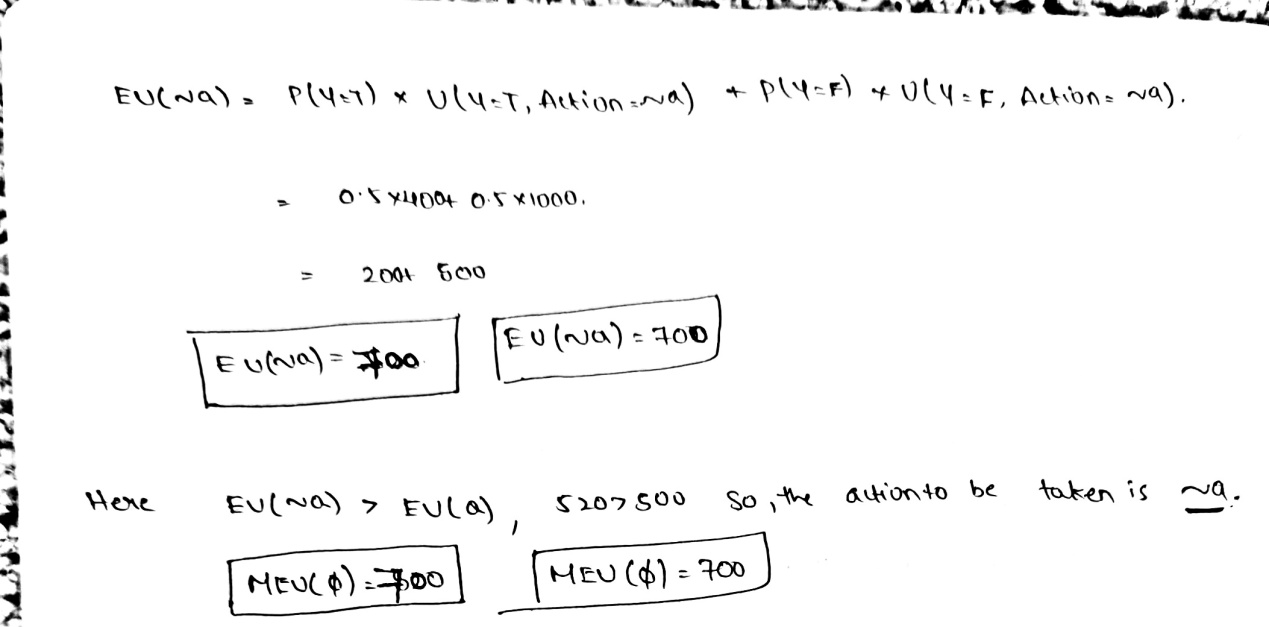 EU(~a) = P(Y=T) * U(Y=T, Action=~a) + P(Y=F) * U(Y=F, Action=~a).
= 0.5 x400+ 0.5 x1000.
= 200+ 500
EU(~a) = 700
EU(~a) = 700
Here EU(~a) > EU(a), 520>500 So, the action to be taken is ~a.
MEU(φ) = 700
MEU(φ) = 700